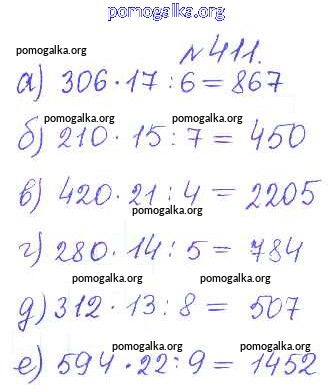 pomogalka.org
№411.
pomogalka.org
а) 306·17:6=867
pomogalka.org pomogalka.org
б) 210·15:7=450
в) 420·21:4=2205
pomogalka.org
г) 280·14:5=784
pomogalka.org pomogalka.org
д) 312·13:8=507
pomogalka.org pomogalka.org
е) 594·22:9=1452